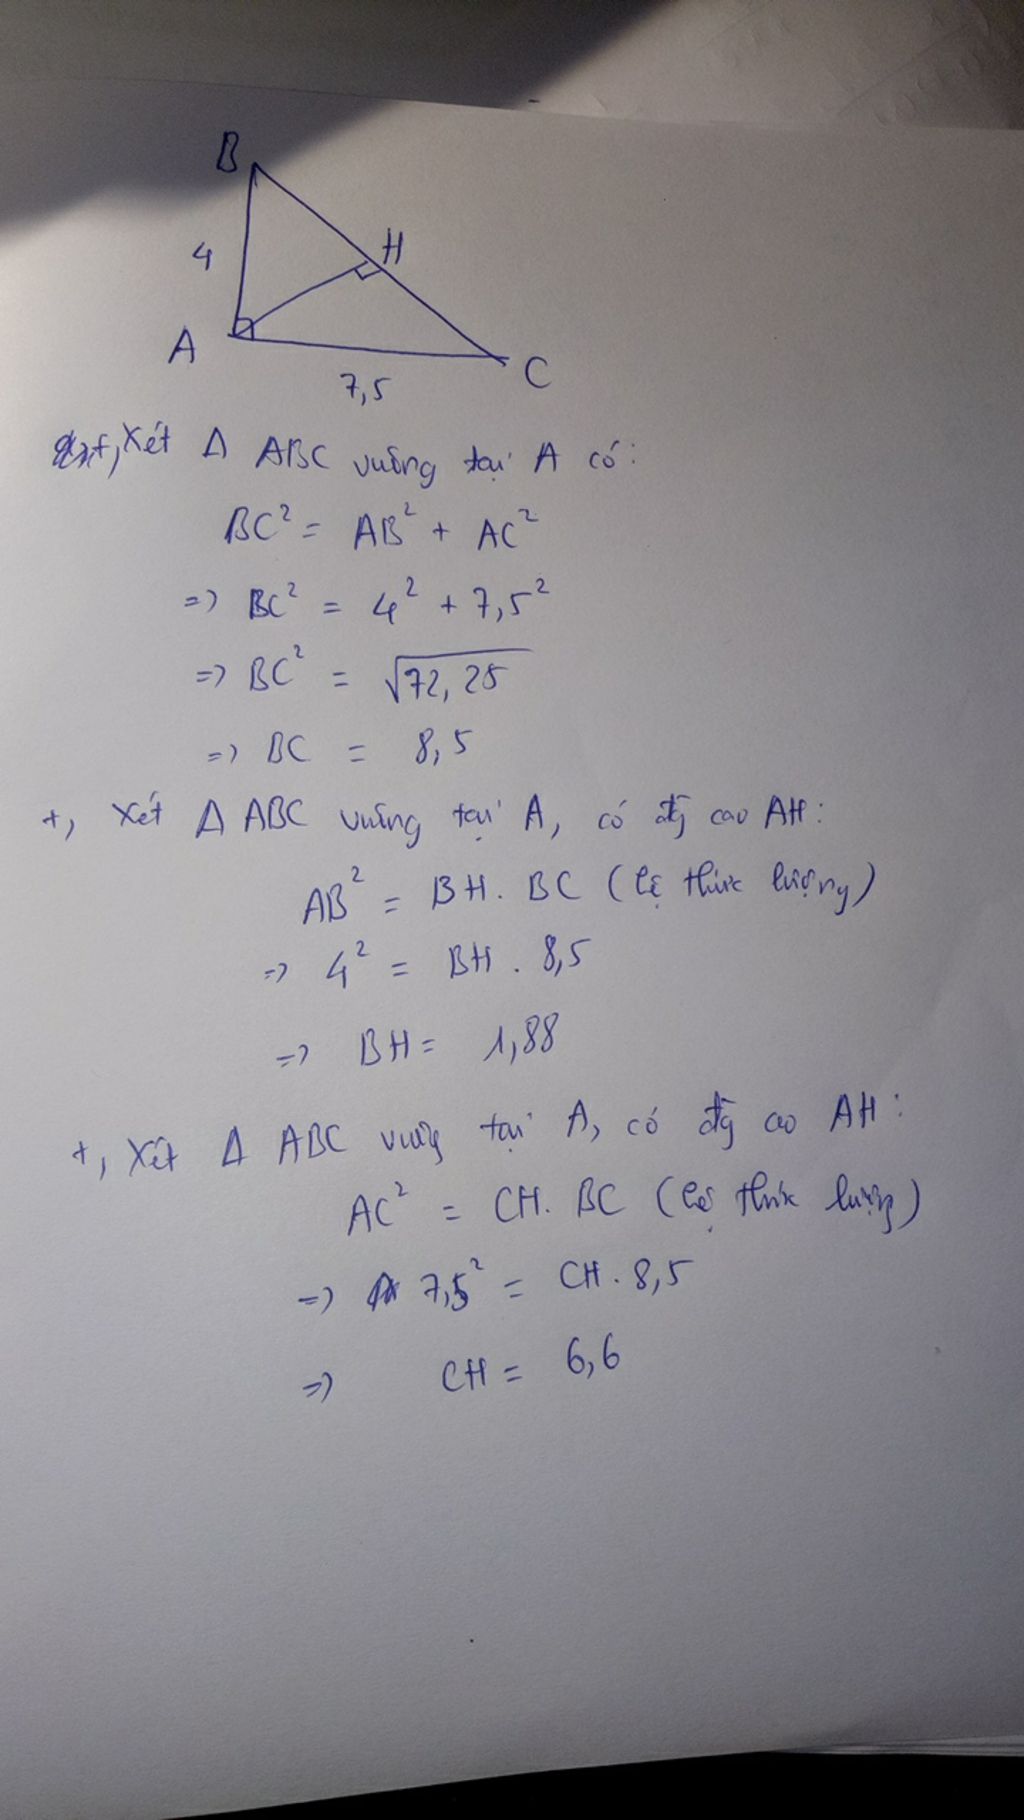 B
4
H
A
C
7,5
+, Xét Δ ABC vuông tại A có:
BC² = AB² + AC²
=> BC² = 4² + 7,5²
=> BC² = √72,25
=> BC = 8,5
+, Xét Δ ABC vuông tại A, có đg cao AH:
AB² = BH. BC (hệ thức lượng)
=> 4² = BH . 8,5
=> BH = 1,88
+, Xét Δ ABC vuông tại A, có đg cao AH:
AC² = CH. BC (hệ thức lượng)
=> 7,5² = CH. 8,5
=> CH = 6,6